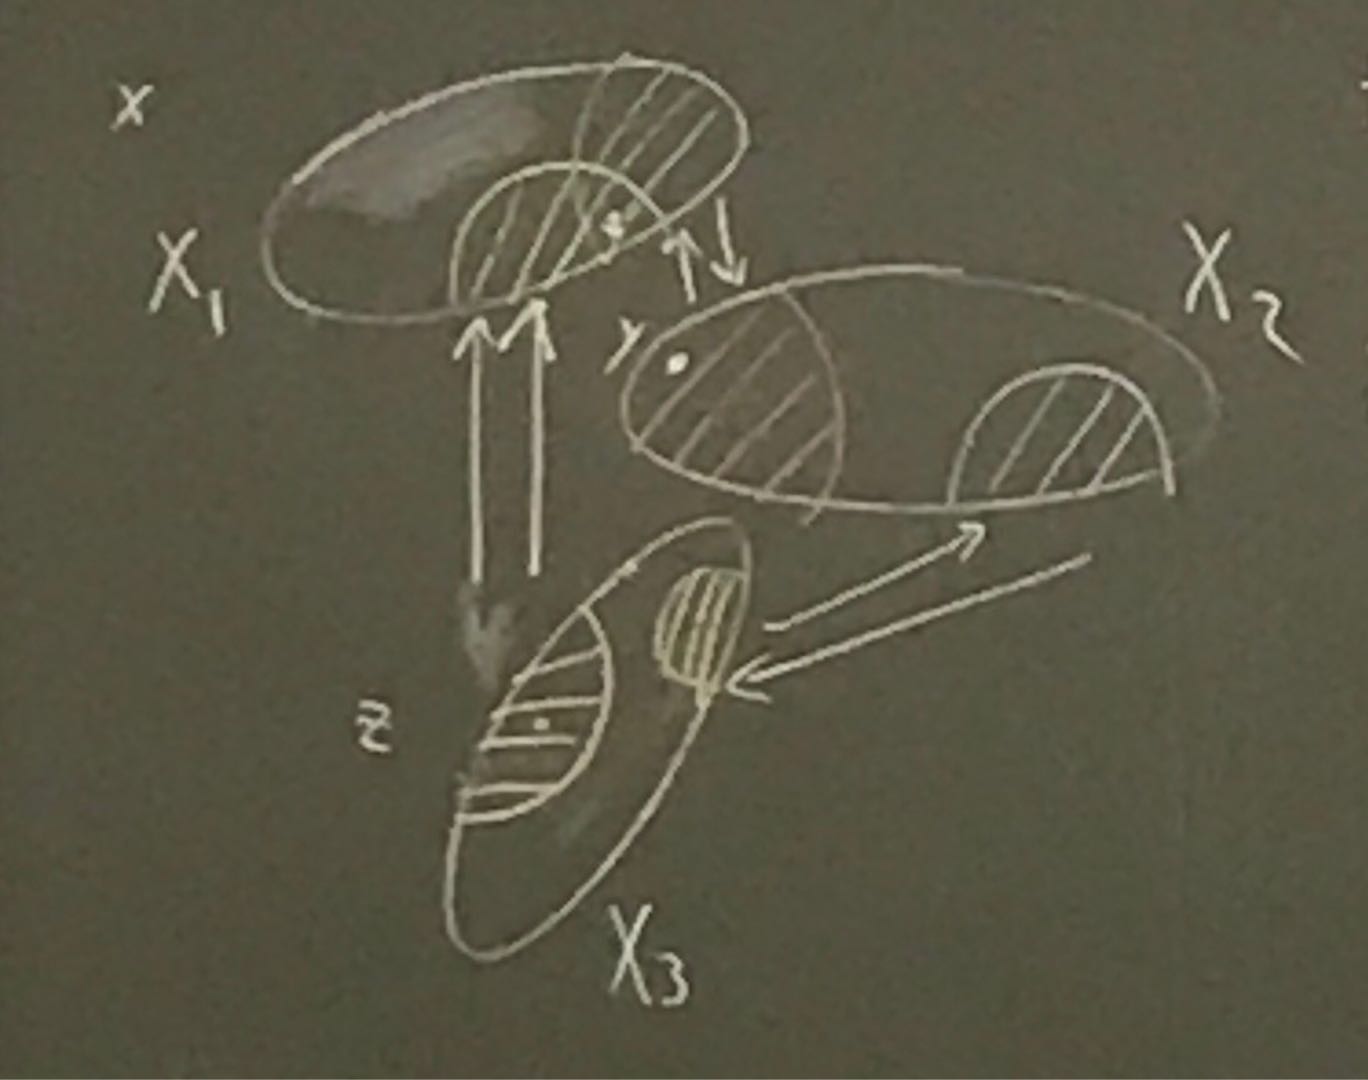 x
X₁
X₂
y
z
X₃